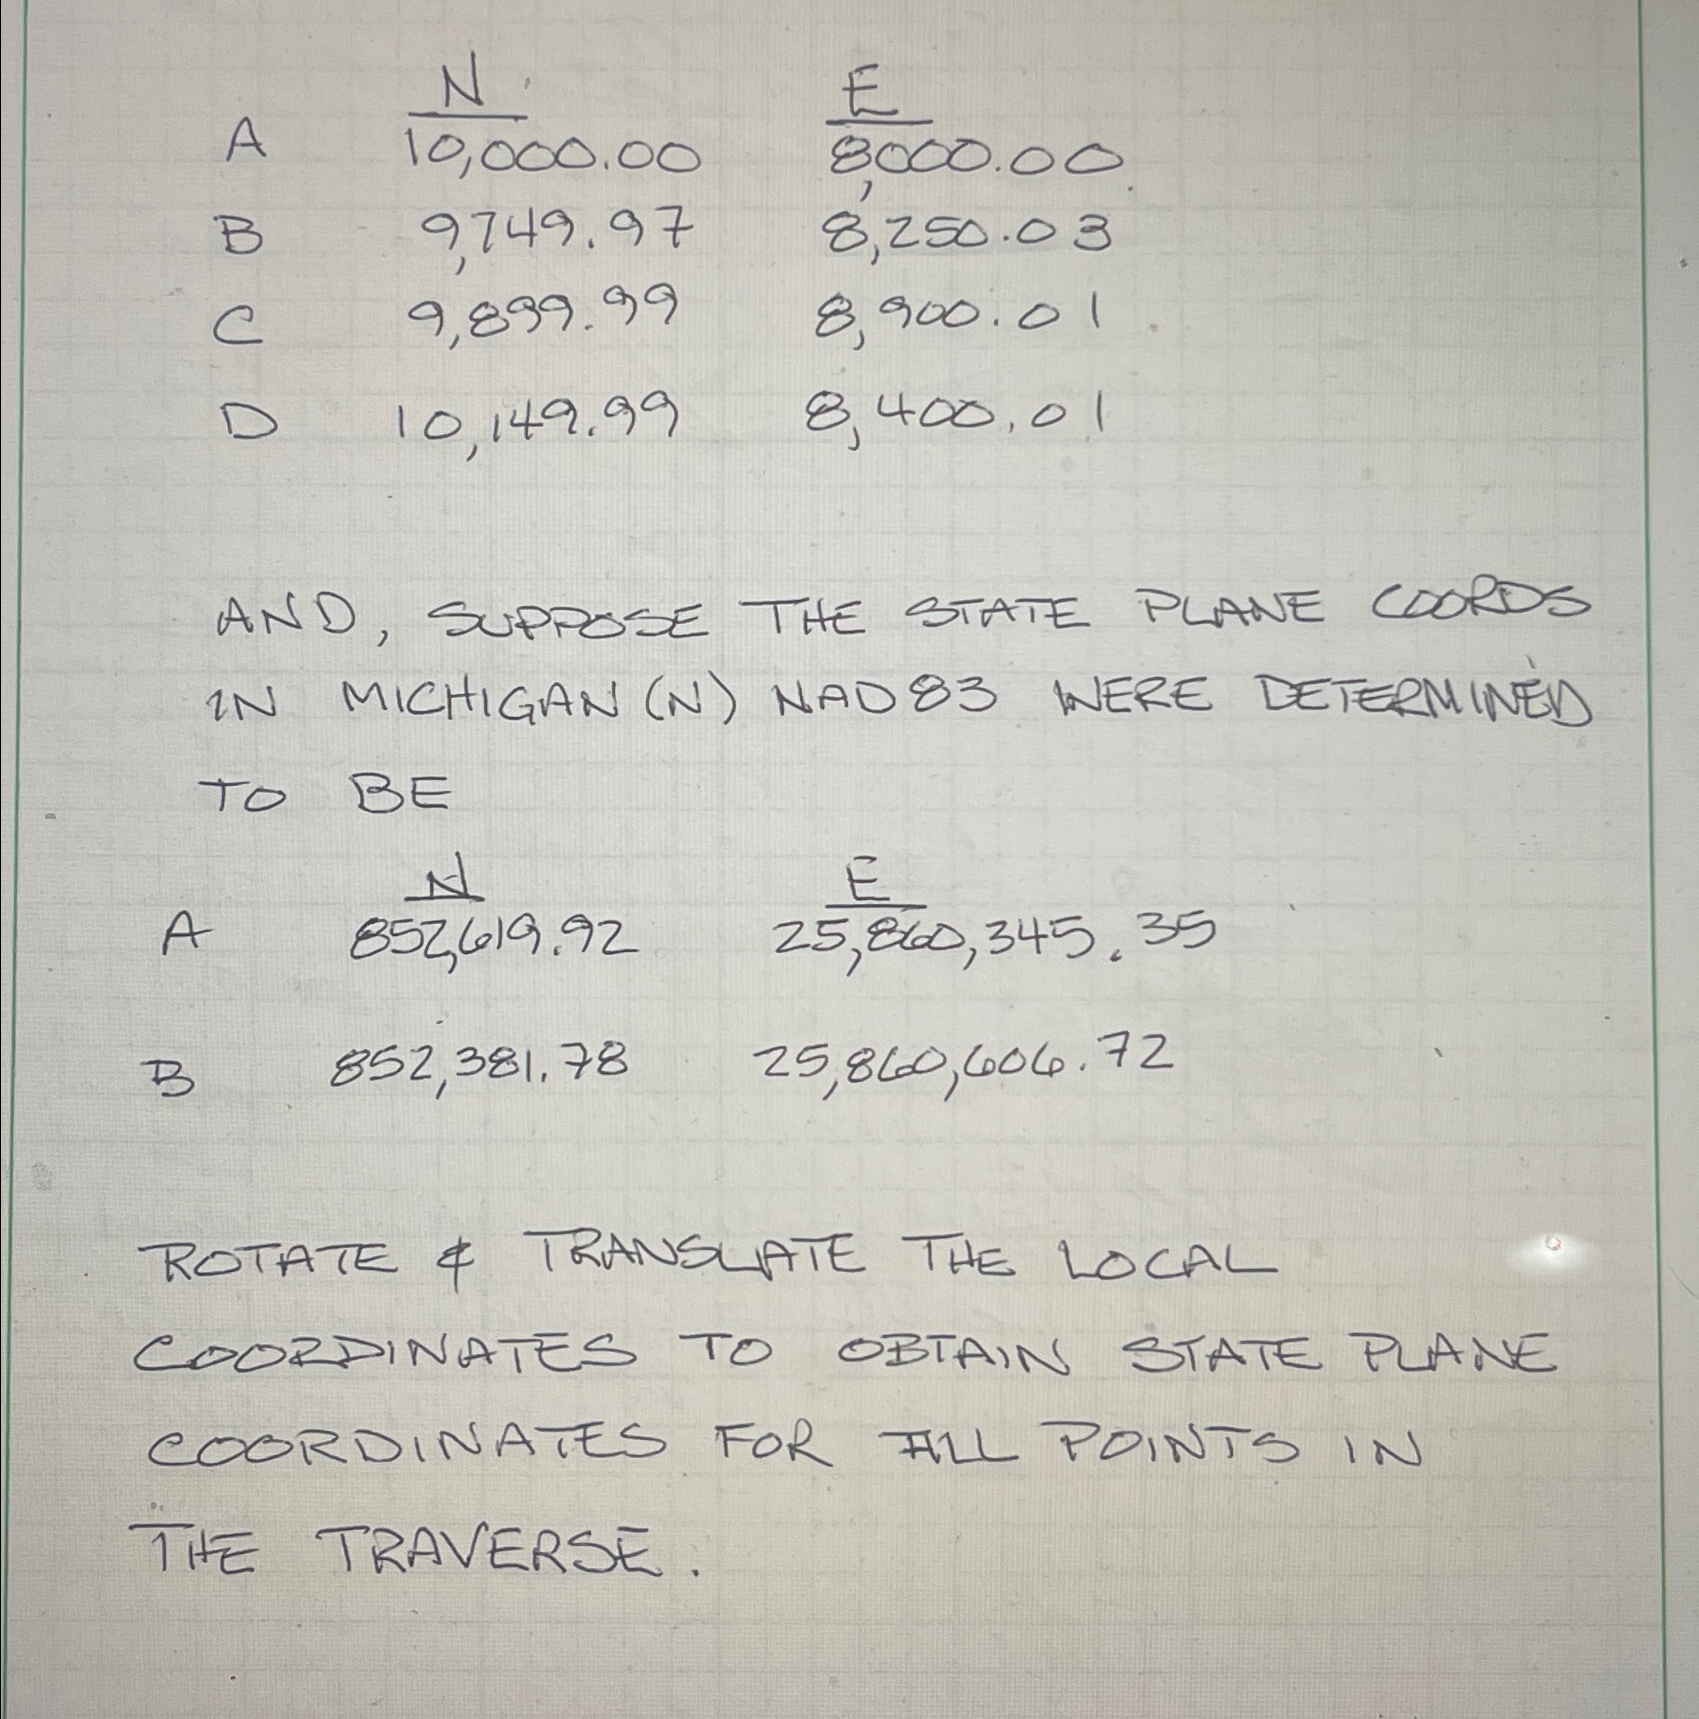 N E
A 10,000.00 8,000.00
B 9,749.97 8,250.03
C 9,899.99 8,900.01
D 10,149.99 8,400.01
AND, SUPPOSE THE STATE PLANE COORDS
IN MICHIGAN (N) NAD 83 WERE DETERMINED
TO BE
N E
A 852,619.92 25,860,345.35
B 852,381.78 25,860,606.72
ROTATE & TRANSLATE THE LOCAL
COORDINATES TO OBTAIN STATE PLANE
COORDINATES FOR ALL POINTS IN
THE TRAVERSE.